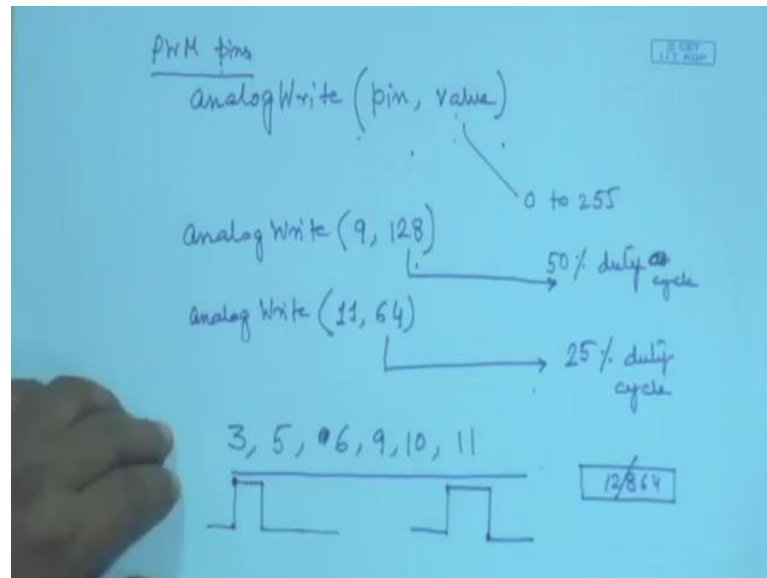 PWM pins
analogWrite (pin, value)
0 to 255
analogWrite (9, 128)
50% duty cycle
analogWrite (11, 64)
25% duty cycle
3, 5, 6, 9, 10, 11